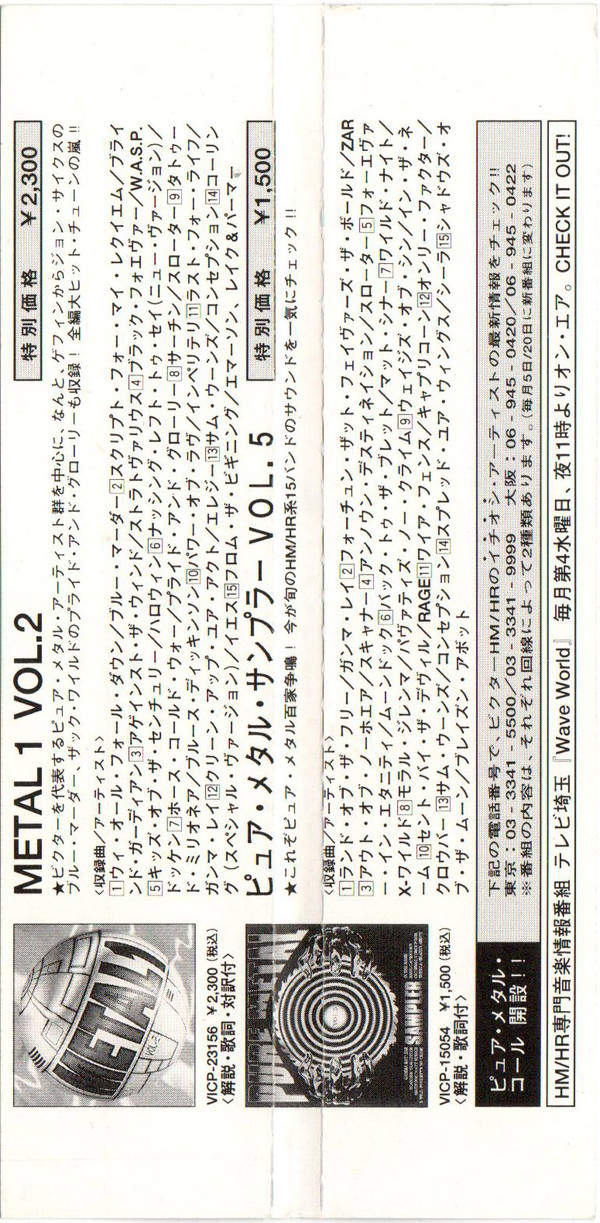 METAL 1 VOL.2
特別価格 ¥2,300
★ビクターを代表するピュア・メタル・アーティスト群を中心に、なんとゲフィンからジョン・サイクスの
ブルー・マーダー、ザック・ワイルドのプライド・アンド・グローリーも収録! 全編大ヒット・チューンの嵐!!
〈収録曲/アーティスト〉
1ウィ・オール・フォール・ダウン/ブルー・マーダー2スクリプト・フォー・マイ・レクイエム/ブライ
ンド・ガーディアン3アゲインスト・ザ・ウィンド/ストラトヴァリウス4ブラック・フォエヴァー/W.A.S.P.
5キッズ・オブ・ザ・センチュリー/ハロウィン6ナッシング・レフト・トゥ・セイ(ニュー・ヴァージョン)/
ドッケン7ホース・コールド・ウォー/プライド・アンド・グローリー8サーチン/スローター9タトゥー
ド・ミリオネア/ブルース・ディッキンソン10パワー・オブ・ラヴ/インペリテリ11ラスト・フォー・ライフ/
ガンマ・レイ12クリーン・アップ・ユア・アクト/エレジー13サム・ウーンズ/コンセプション14コーリン
グ(スペシャル・ヴァージョン)/イエス15フロム・ザ・ビギニング/エマーソン、レイク&パーマー
METAL 1
VOL.2
VICP-23156 ¥2,300(税込)
〈解説・歌詞・対訳付〉
ピュア・メタル・サンプラー VOL.5
特別価格 ¥1,500
★これぞピュア・メタル百家争鳴! 今が旬のHM/HR系15バンドのサウンドを一気にチェック!!
〈収録曲/アーティスト〉
1ランド・オブ・ザ・フリー/ガンマ・レイ2フォーチュン・ザット・フェイヴァーズ・ザ・ボールド/ZAR
3アウト・オブ・ノーホエア/スキャナー4アンノウン・デスティネイション/スローター5フォーエヴァ
ー・イン・エタニティ/ムーンドック6バック・トゥ・ザ・ブレット/マット・シナー7ワイルド・ナイト/
X-ワイルド8モラル・ジレンマ/パヴァティズ・ノー・クライム9ウェイジズ・オブ・シン/イン・ザ・ネ
ーム10セント・バイ・ザ・デヴィル/RAGE11ワイア・フェンス/キャプリコーン12オンリー・ファクター/
クロウバー13サム・ウーンズ/コンセプション14スプレッド・ユア・ウィングス/シーラ15シャドウズ・オ
ブ・ザ・ムーン/ブレイズン・アボット
PURE METAL
SAMPLER
VICP-15054 ¥1,500(税込)
〈解説・歌詞付〉
ピュア・メタル・
コール 開設!!
下記の電話番号で、ビクターHM/HRのイチオシ・アーティストの最新情報をチェック!!
東京:03-3341-5500/03-3341-9999 大阪:06-945-0420/06-945-0422
※番組の内容は、それぞれ回線によって2種類あります。(毎月5日/20日に新番組に変わります)
HM/HR専門音楽情報番組 テレビ埼玉『Wave World』 毎月第4水曜日、夜11時よりオン・エア。CHECK IT OUT!